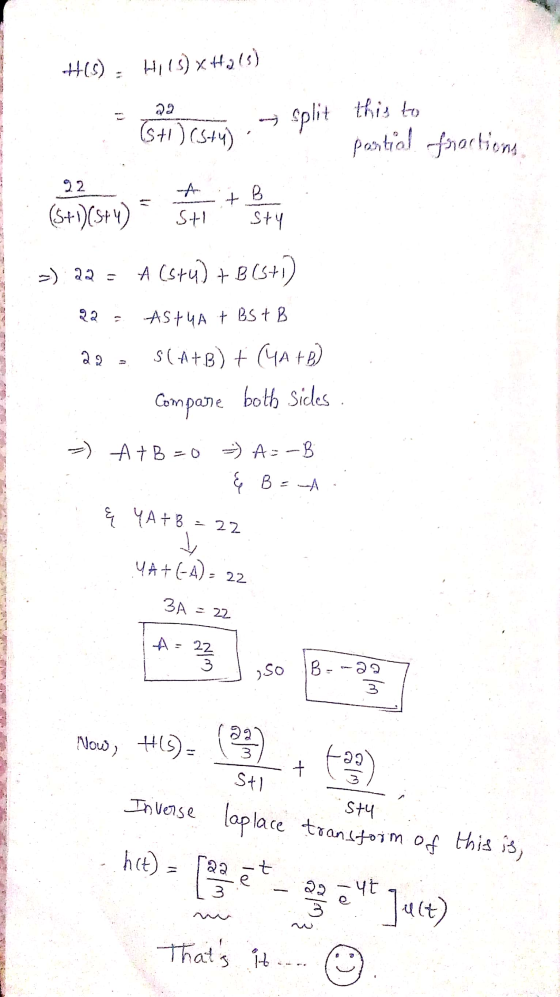 H(s) = H1(s) x H2(s)
= 22 / (s+1)(s+4) . → split this to
partial fractions.
22 / (s+1)(s+4) = A / s+1 + B / s+4
=) 22 = A(s+4) + B(s+1)
22 = As+4A + Bs+B
22 = s(A+B) + (4A+B)
Compare both sides.
=) A+B = 0 =) A = -B
& B = -A.
& 4A+B = 22
↓
4A+(-A) = 22
3A = 22
A = 22/3 , so B = -22/3
Now, H(s) = (22/3) / s+1 + (-22/3) / s+4 ,
Inverse laplace transform of this is,
h(t) = [22/3 e^-t - 22/3 e^-4t] u(t)
That's it .... ☺.